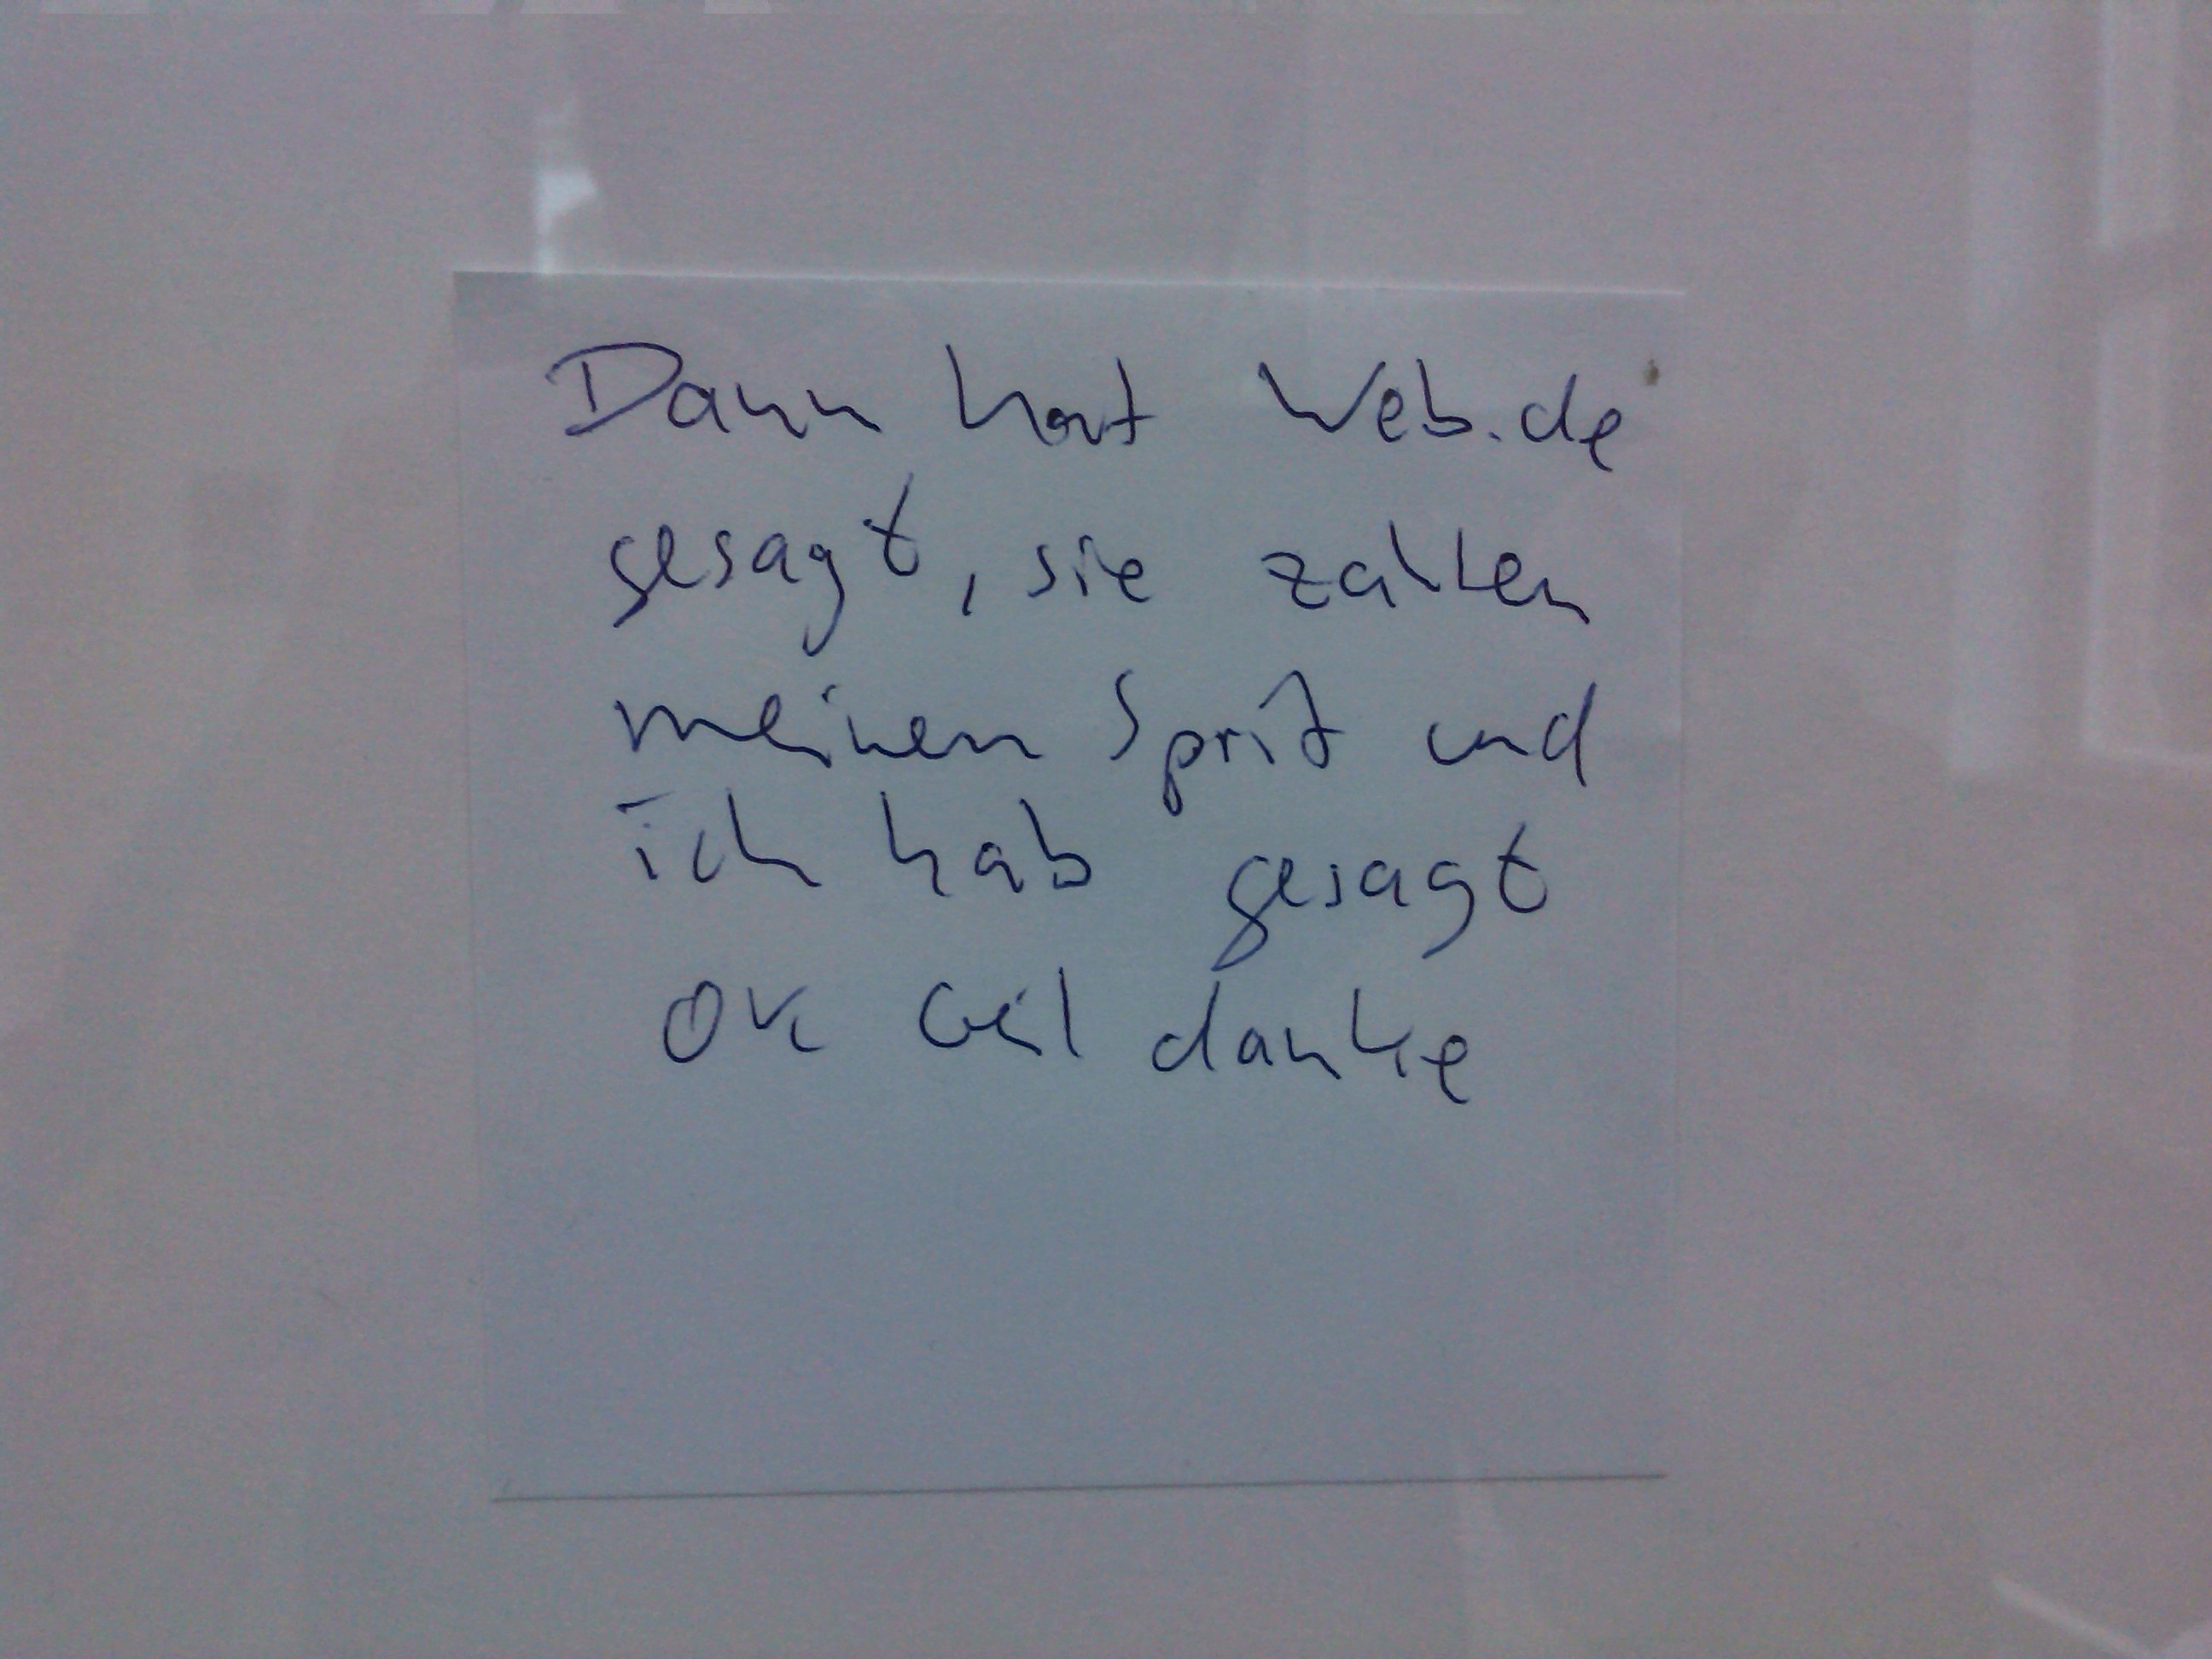 Dann hat Web.de
gesagt, sie zahlen
meinen Sprit und
ich hab gesagt
OK Geil danke